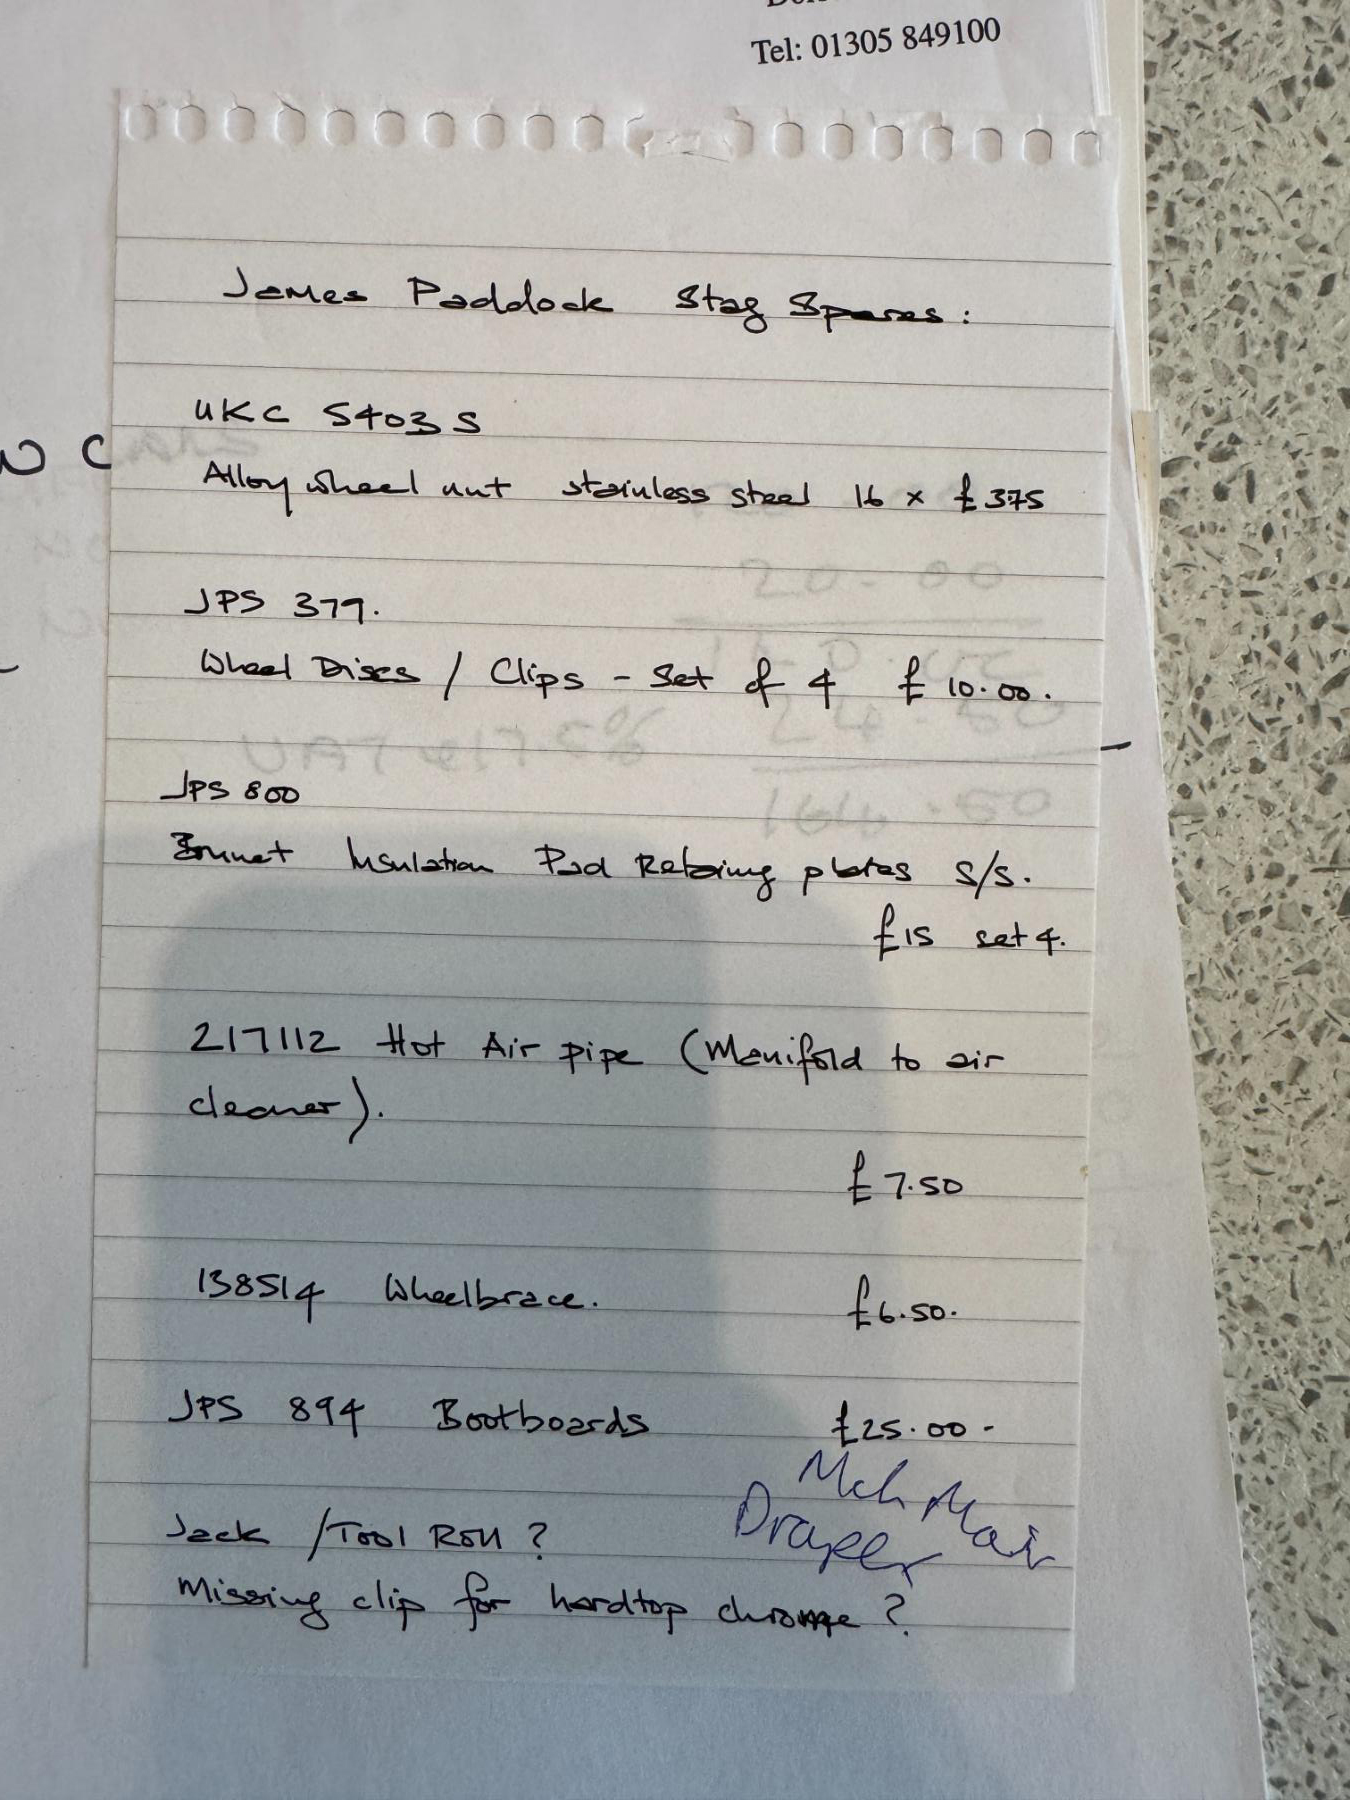 Tel: 01305 849100
James Paddock Stag Spares:
UKC 5403 S
Alloy wheel nut stainless steel 16 x £3.75
JPS 379.
Wheel Discs / Clips - Set of 4 £10.00.
JPS 800
Bonnet Insulation Pad Retaing plates S/S.
£15 set 4.
217112 Hot Air pipe (Manifold to air
cleaner).
£7.50
138514 Wheelbrace. £6.50.
JPS 894 Bootboards £25.00-
Draper
Jack / Tool Roll ?
Missing clip for hardtop chrome ?
20.00
VAT @ 17.5% 24.50
164.50